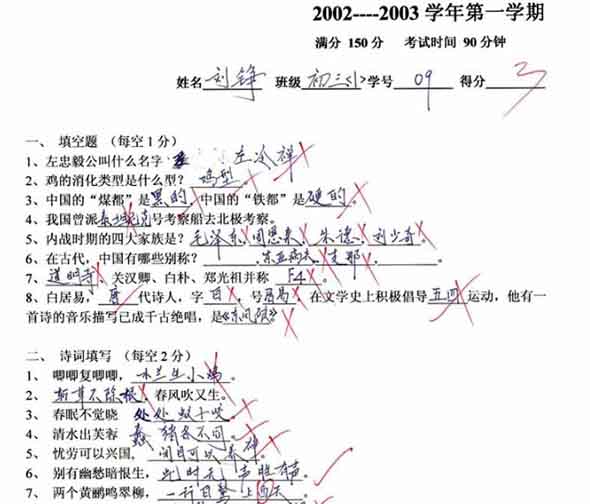 2002----2003 学年第一学期
满分 150 分 考试时间 90 分钟
姓名 刘铮 班级 初三<1> 学号 09 得分 3
一、 填空题 （每空 1 分）
1、左忠毅公叫什么名字 左冷禅
2、鸡的消化类型是什么型？ 鸡型
3、中国的“煤都”是黑的，中国的“铁都”是硬的。
4、我国曾派泰坦尼克号考察船去北极考察。
5、内战时期的四大家族是？毛泽东、周恩来、朱德、刘少奇。
6、在古代，中国有哪些别称？ 东亚病夫、支那。
7、道明寺、关汉卿、白朴、郑光祖并称 F4。
8、白居易，唐代诗人，字 白，号居易，在文学史上积极倡导五四运动，他有一
首诗的音乐描写已成千古绝唱，是《东风破》。
二、 诗词填写 （每空 2 分）
1、 唧唧复唧唧，木兰生小鸡。
2、 斩草不除根，春风吹又生。
3、 春眠不觉晓 处处蚊子咬
4、 清水出芙蓉 猪各不同。
5、 忧劳可以兴国，闭目可以养神
6、 别有幽愁暗恨生，此时无声胜有声。
7、 两个黄鹂鸣翠柳，一行白鹭上西天